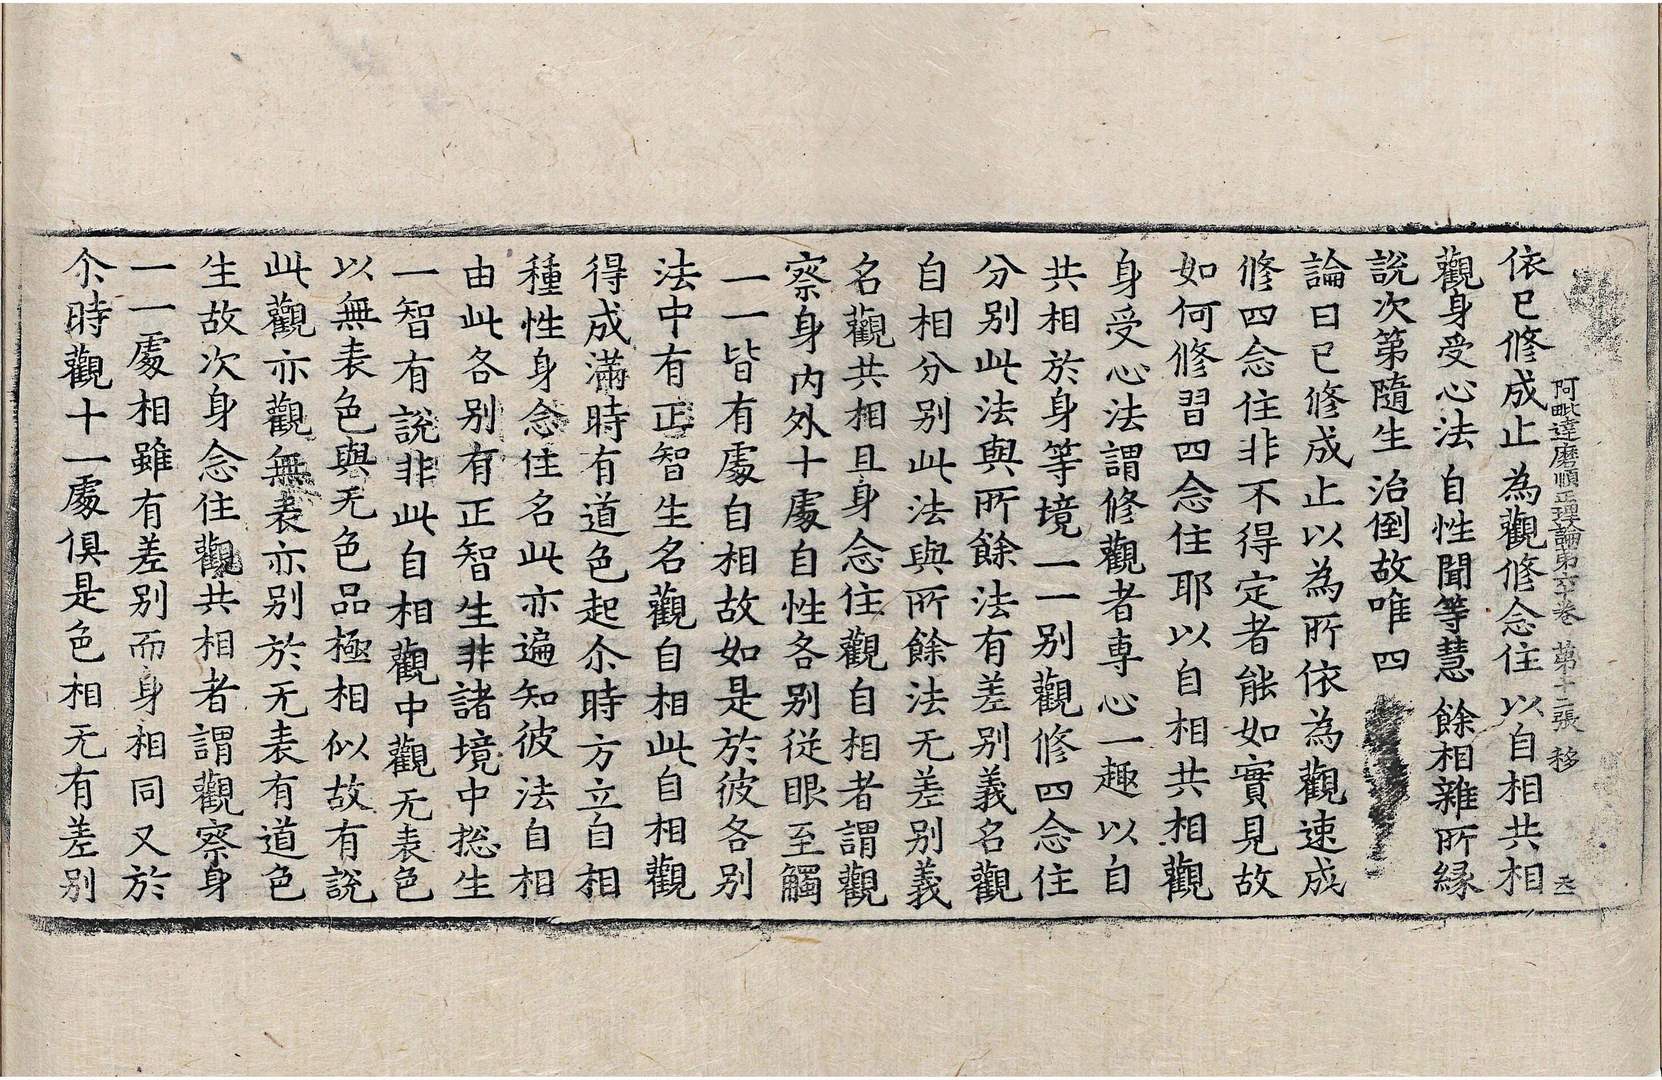 阿毗達磨順正理論第六十卷　第十二張　移
依已修成止　為觀修念住　以自相共相
觀身受心法　自性聞等慧　餘相雜所緣
說次第隨生　治倒故唯四
論曰已修成止以為所依為觀速成
修四念住非不得定者能如實見故
如何修習四念住耶以自相共相觀
身受心法謂修觀者專心一趣以自
共相於身等境一一別觀修四念住
分別此法與所餘法有差別義名觀
自相分別此法與所餘法无差別義
名觀共相且身念住觀自相者謂觀
察身內外十處自性各別從眼至觸
一一皆有處自相故如是於彼各別
法中有正智生名觀自相此自相觀
得成滿時有道色起尒時方立自相
種性身念住名此亦遍知彼法自相
由此各別有正智生非諸境中捴生
一智有說非此自相觀中觀无表色
以無表色與无色品極相似故有說
此觀亦觀無表亦別於无表有道色
生故次身念住觀共相者謂觀察身
一一處相雖有差別而身相同又於
尒時觀十一處俱是色相无有差別